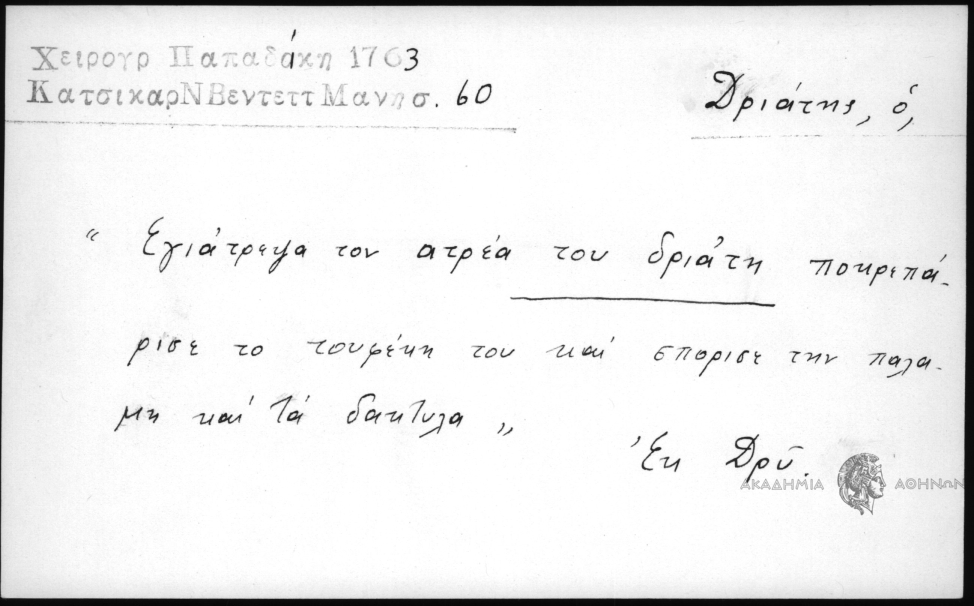 Χειρογρ Παπαδάκη 1763
ΚατσικαρΝΒεντεττΜανησ. 60
Δριάτης, ὁ,
“ Εγιάτρεψα τον ατρέα του δριάτη
ρισε το τουφέκη του καί σπορισε την παλα-
μη καί τά δακτυλα „
Ἐκ Δρῦ.
ΑΚΑΔΗΜΙΑ ΑΘΗΝΩΝ